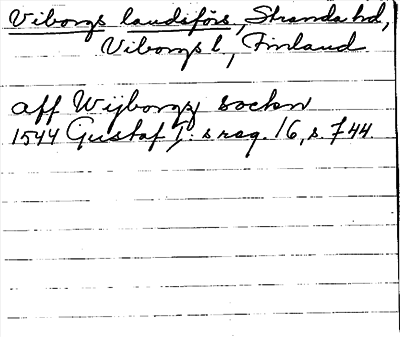 Viborgs landsförs, Stranda hd,
Viborgs l., Finland
aff Wijborgz sockn
1544 Gustaf I:s reg. 16, s. 744.